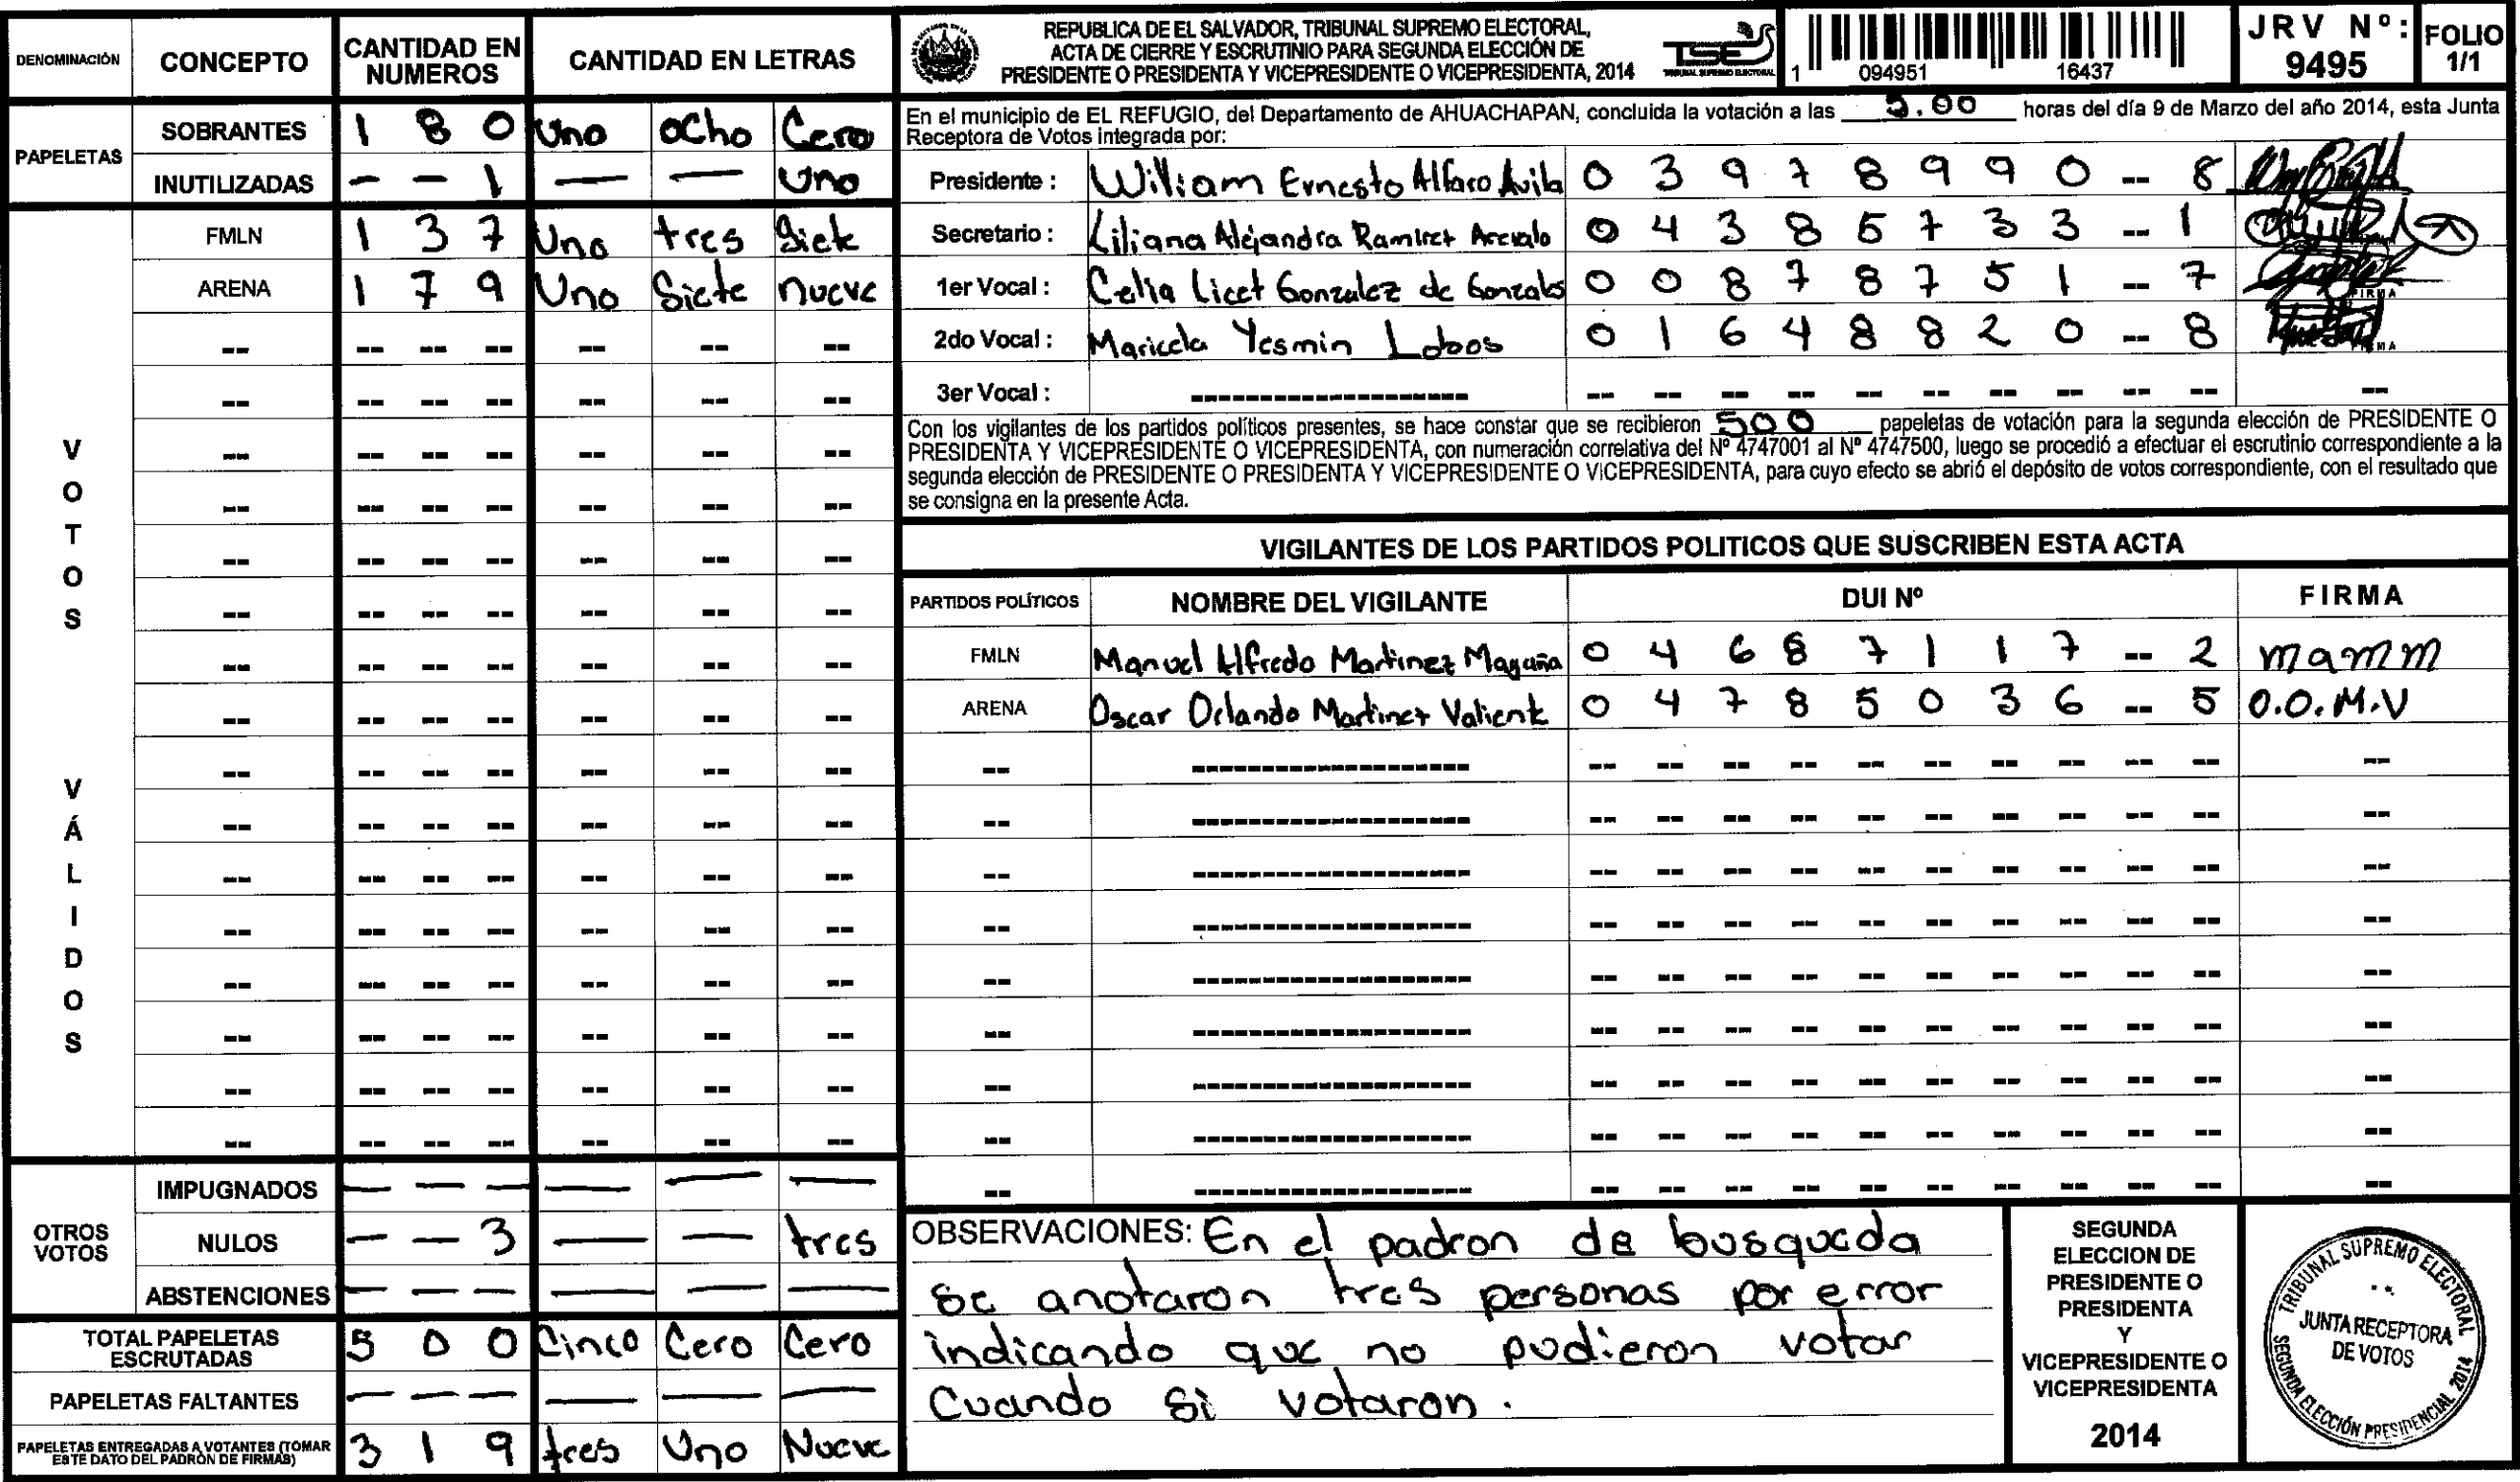 DENOMINACIÓN CONCEPTO CANTIDAD EN NUMEROS CANTIDAD EN LETRAS
PAPELETAS
SOBRANTES 1 8 0 Uno ocho Cero
INUTILIZADAS - - 1 — — Uno
VOTOS VÁLIDOS
FMLN 1 3 7 Uno tres Siete
ARENA 1 7 9 Uno Siete nueve
OTROS VOTOS
IMPUGNADOS — — — — — —
NULOS — — 3 — — tres
ABSTENCIONES — — — — — —
TOTAL PAPELETAS ESCRUTADAS 5 0 0 Cinco Cero Cero
PAPELETAS FALTANTES — — — — — —
PAPELETAS ENTREGADAS A VOTANTES (TOMAR ESTE DATO DEL PADRÓN DE FIRMAS) 3 1 9 tres Uno Nueve
REPUBLICA DE EL SALVADOR, TRIBUNAL SUPREMO ELECTORAL,
ACTA DE CIERRE Y ESCRUTINIO PARA SEGUNDA ELECCIÓN DE
PRESIDENTE O PRESIDENTA Y VICEPRESIDENTE O VICEPRESIDENTA, 2014
TSE
TRIBUNAL SUPREMO ELECTORAL
1 094951 16437
JRV Nº: 9495
FOLIO 1/1
En el municipio de EL REFUGIO, del Departamento de AHUACHAPAN, concluida la votación a las 5.00 horas del día 9 de Marzo del año 2014, esta Junta
Receptora de Votos integrada por:
Presidente : William Ernesto Alfaro Avila 0 3 9 7 8 9 9 0 -- 8
Secretario : Liliana Alejandra Ramirez Arevalo 0 4 3 8 5 7 3 3 -- 1
1er Vocal : Celia Licet Gonzalez de Gonzales 0 0 8 7 8 7 5 1 -- 7
2do Vocal : Maricela Yesmin Lobos 0 1 6 4 8 8 2 0 -- 8
3er Vocal : --------------------
Con los vigilantes de los partidos políticos presentes, se hace constar que se recibieron 500 papeletas de votación para la segunda elección de PRESIDENTE O
PRESIDENTA Y VICEPRESIDENTE O VICEPRESIDENTA, con numeración correlativa del Nº 4747001 al Nº 4747500, luego se procedió a efectuar el escrutinio correspondiente a la
segunda elección de PRESIDENTE O PRESIDENTA Y VICEPRESIDENTE O VICEPRESIDENTA, para cuyo efecto se abrió el depósito de votos correspondiente, con el resultado que
se consigna en la presente Acta.
VIGILANTES DE LOS PARTIDOS POLITICOS QUE SUSCRIBEN ESTA ACTA
PARTIDOS POLÍTICOS NOMBRE DEL VIGILANTE DUI Nº FIRMA
FMLN Manuel Alfredo Martinez Magaña 0 4 6 8 7 1 1 7 -- 2 mamm
ARENA Oscar Orlando Martinez Valiente 0 4 7 8 5 0 3 6 -- 5 O.O.M.V
OBSERVACIONES: En el padron de busqueda
se anotaron tres personas por error
indicando que no pudieron votar
Cuando si votaron.
SEGUNDA
ELECCION DE
PRESIDENTE O
PRESIDENTA
Y
VICEPRESIDENTE O
VICEPRESIDENTA
2014
TRIBUNAL SUPREMO ELECTORAL
JUNTA RECEPTORA
DE VOTOS
SEGUNDA ELECCIÓN PRESIDENCIAL 2014